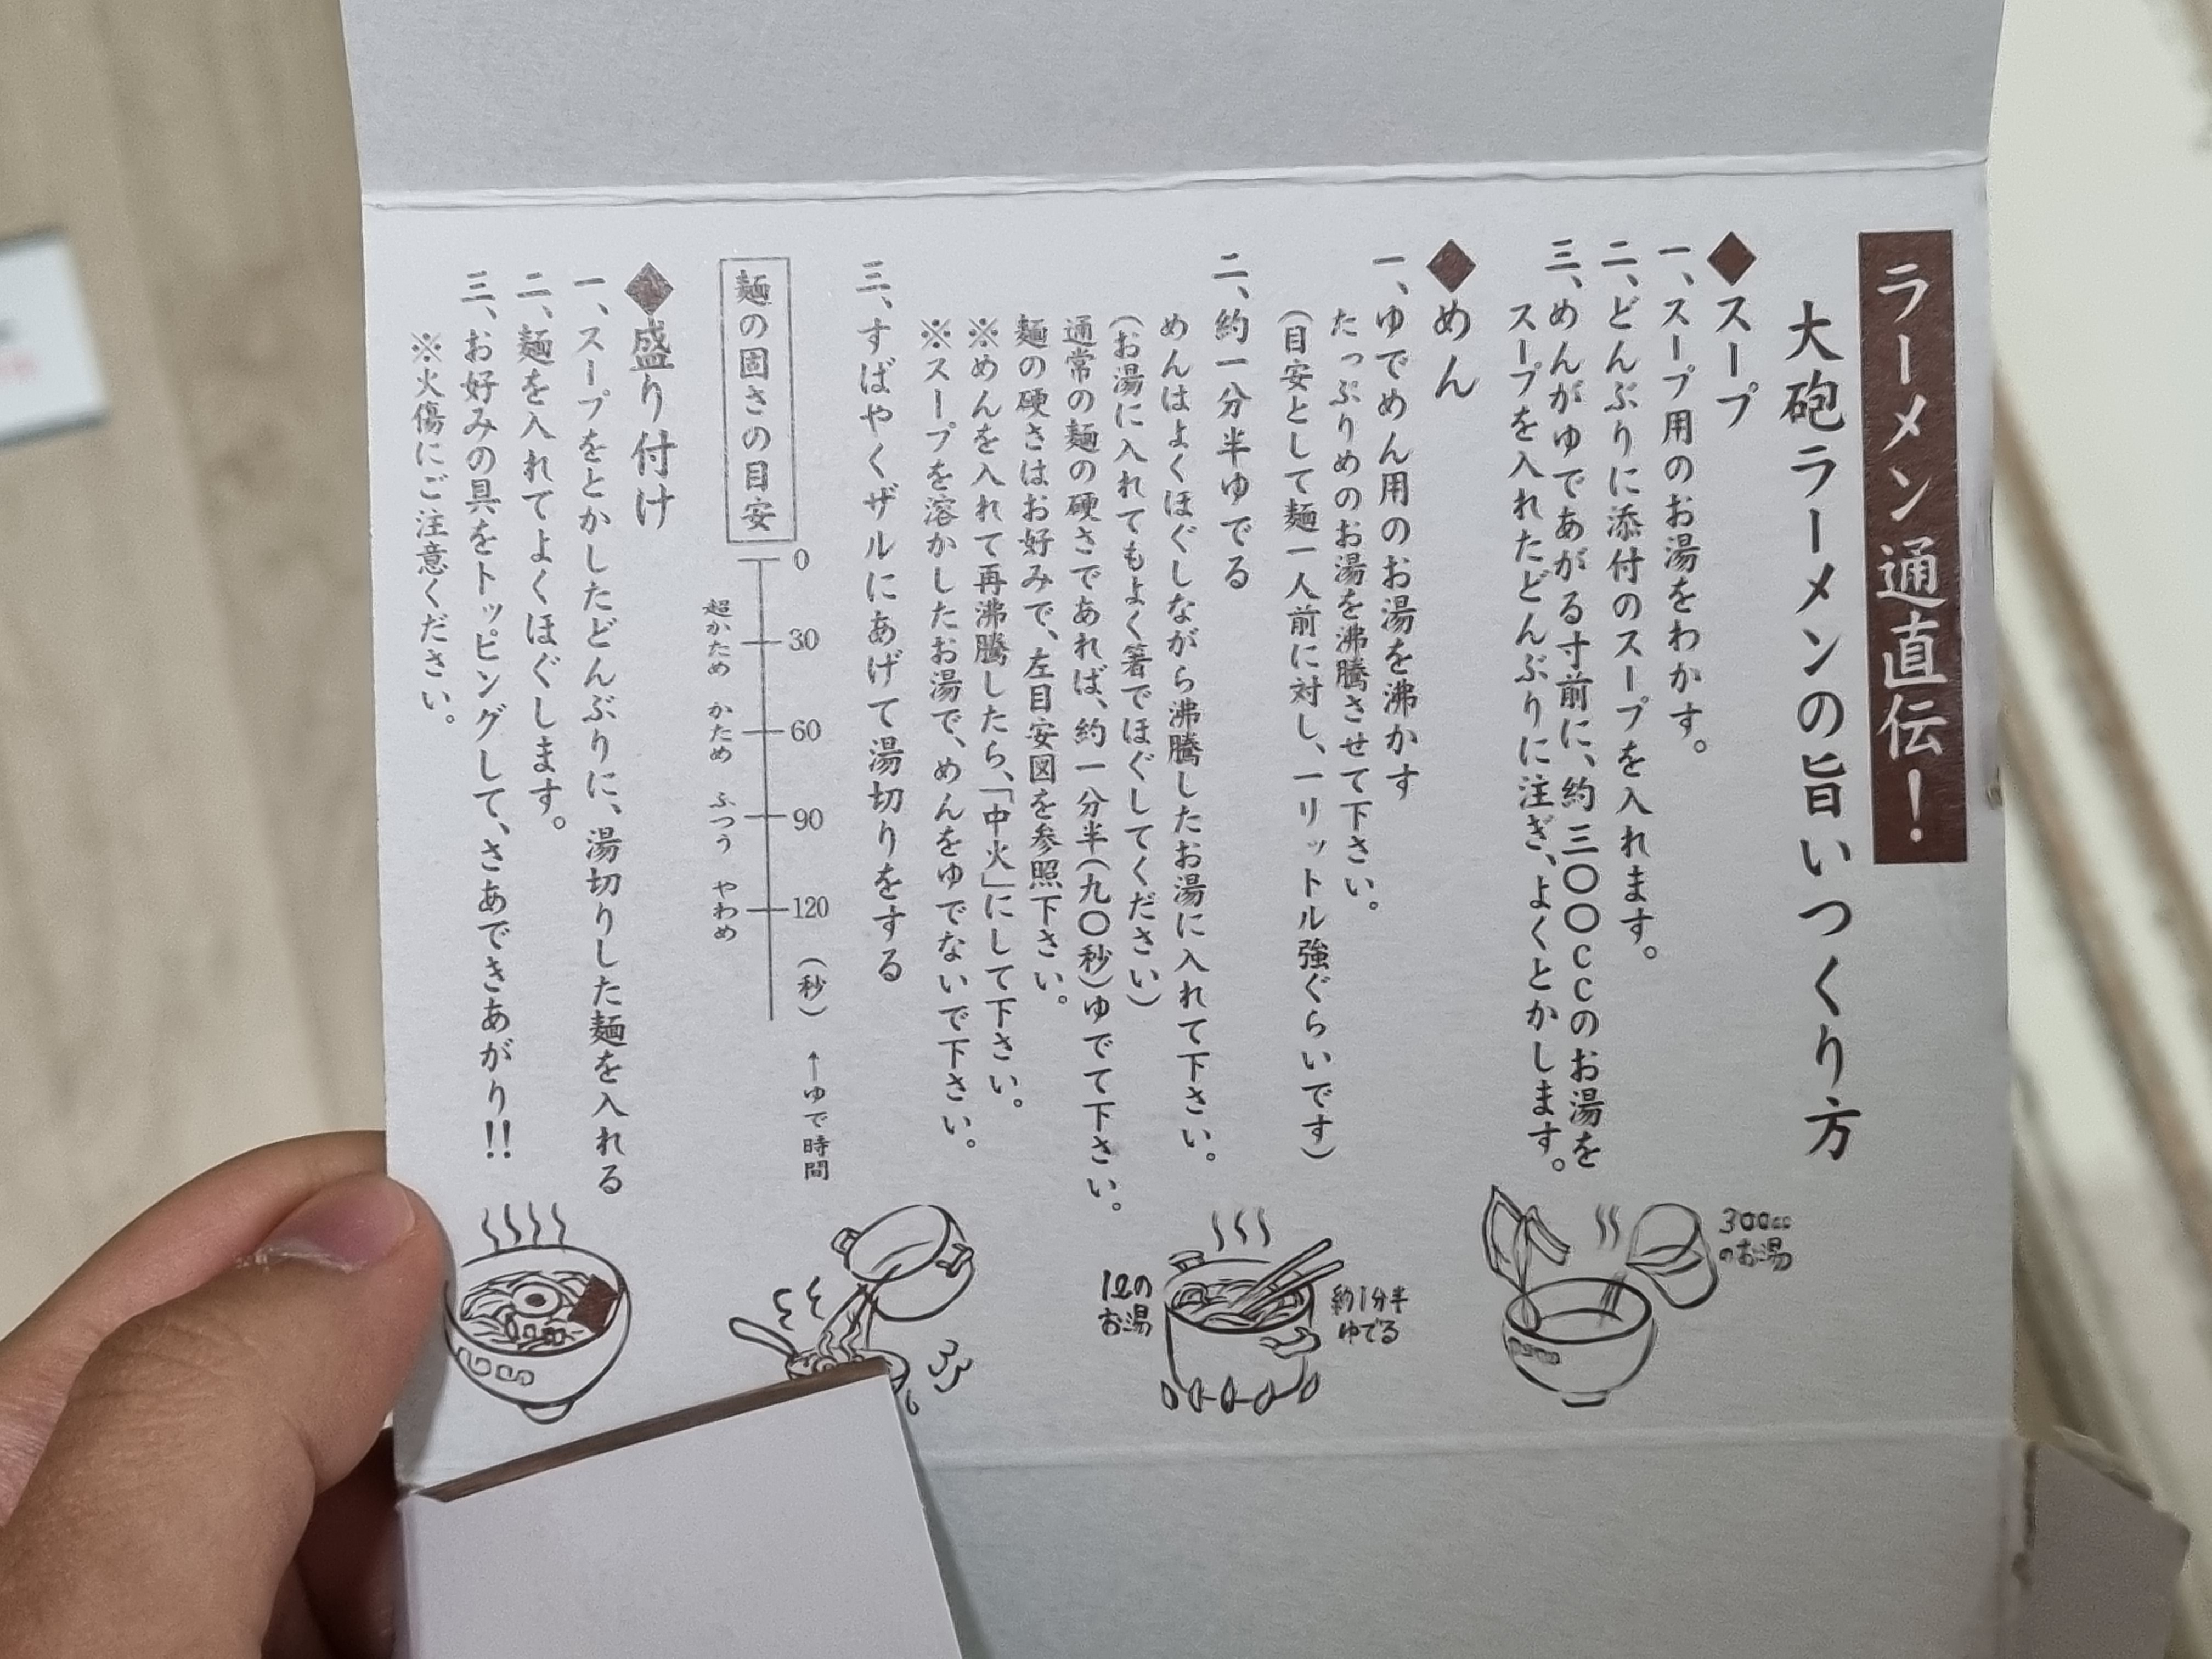 ラーメン通直伝！
大砲ラーメンの旨いつくり方
◆スープ
一、スープ用のお湯をわかす。
二、どんぶりに添付のスープを入れます。
三、めんがゆであがる寸前に、約三〇〇ccのお湯を
スープを入れたどんぶりに注ぎ、よくとかします。
300ccのお湯
◆めん
一、ゆでめん用のお湯を沸かす
たっぷりめのお湯を沸騰させて下さい。
（目安として麺一人前に対し、一リットル強ぐらいです）
二、約一分半ゆでる
めんはよくほぐしながら沸騰したお湯に入れて下さい。
（お湯に入れてもよく箸でほぐしてください）
通常の麺の硬さであれば、約一分半（九〇秒）ゆでて下さい。
麺の硬さはお好みで、左目安図を参照下さい。
※めんを入れて再沸騰したら、「中火」にして下さい。
※スープを溶かしたお湯で、めんをゆでないで下さい。
約1分半
ゆでる
1ℓの
お湯
三、すばやくザルにあげて湯切りをする
麺の固さの目安
0 30 60 90 120 （秒） ←ゆで時間
超かため かため ふつう やわめ
◆盛り付け
一、スープをとかしたどんぶりに、湯切りした麺を入れる
二、麺を入れてよくほぐします。
三、お好みの具をトッピングして、さあできあがり!!
※火傷にご注意ください。